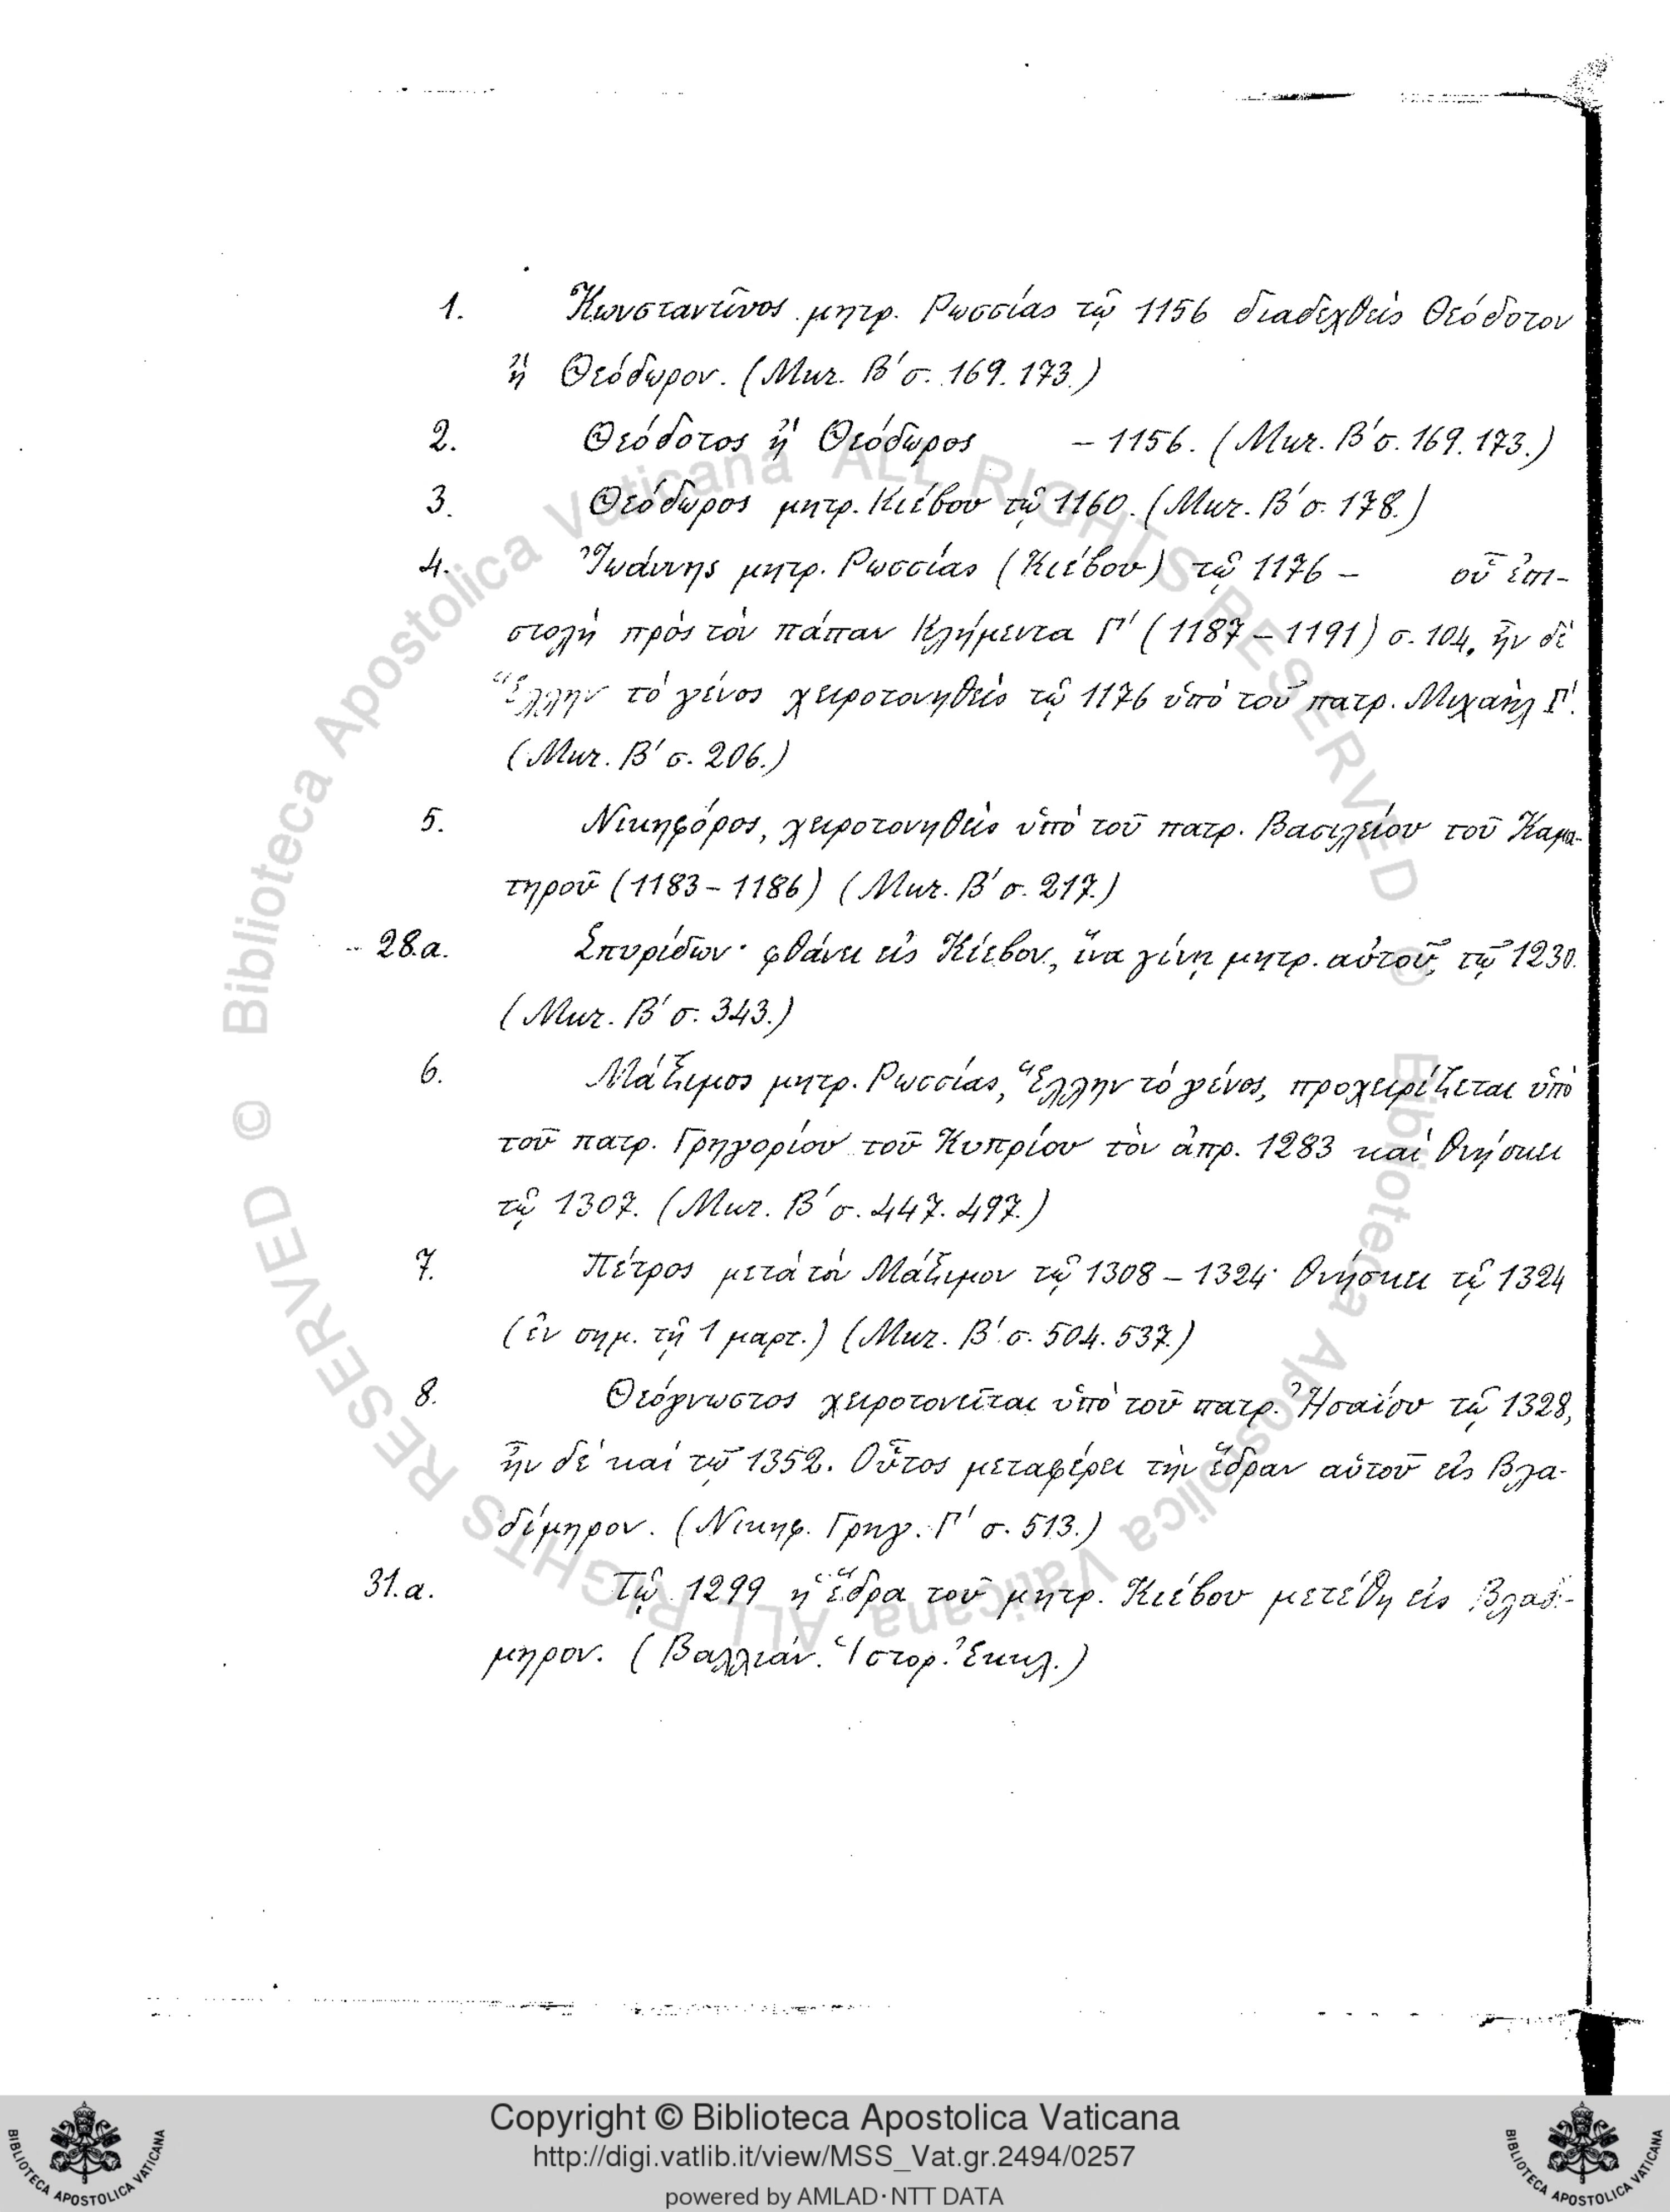 1. Κωνσταντῖνος μητρ. Ρωσσίας τῷ 1156 διαδεχθεὶς Θεόδοτον
ἢ Θεόδωρον. (Μur. Β΄ σ. 169. 173.)
2. Θεόδοτος ἢ Θεόδωρος – 1156. (Μur. Β΄ σ. 169. 173.)
3. Θεόδωρος μητρ. Κιέβου τῷ 1160. (Μur. Β΄ σ. 178.)
4. Ἰωάννης μητρ. Ρωσσίας (Κιέβου) τῷ 1176 – οὗ ἐπι-
στολὴ πρὸς τὸν πάπαν Κλήμεντα Γ΄ (1187 – 1191) σ. 104, ἦν δὲ
Ἕλλην τὸ γένος χειροτονηθεὶς τῷ 1176 ὑπὸ τοῦ πατρ. Μιχαὴλ Γ΄.
(Μur. Β΄ σ. 206.)
5. Νικηφόρος, χειροτονηθεὶς ὑπὸ τοῦ πατρ. Βασιλείου τοῦ Καμα-
τηροῦ (1183 – 1186) (Μur. Β΄ σ. 217.)
28.α. Σπυρίδων· φθάνει εἰς Κίεβον, ἵνα γίνῃ μητρ. αὐτοῦ, τῷ 1230.
(Μur. Β΄ σ. 343.)
6. Μάξιμος μητρ. Ρωσσίας, Ἕλλην τὸ γένος, προχειρίζεται ὑπὸ
τοῦ πατρ. Γρηγορίου τοῦ Κυπρίου τὸν ἀπρ. 1283 καὶ θνήσκει
τῷ 1307. (Μur. Β΄ σ. 447. 497.)
7. Πέτρος μετὰ τὸν Μάξιμον τῷ 1308 – 1324· θνήσκει τῷ 1324
(ἐν σημ. τῇ 1 μαρτ.) (Μur. Β΄ σ. 504. 537.)
8. Θεόγνωστος χειροτονεῖται ὑπὸ τοῦ πατρ. Ἡσαΐου τῷ 1328,
ἦν δὲ καὶ τῷ 1352. Οὗτος μεταφέρει τὴν ἕδραν αὐτοῦ εἰς Βλα-
δίμηρον. (Νικηφ. Γρηγ. Γ΄ σ. 513.)
31.α. Τῷ 1299 ἡ ἕδρα τοῦ μητρ. Κιέβου μετέθη εἰς Βλαδι-
μηρον. (Βαλλιάν. Ἱστορ. Ἐκκλ.)
© Biblioteca Apostolica Vaticana ALL RIGHTS RESERVED
© Biblioteca Apostolica Vaticana ALL RIGHTS RESERVED
Copyright © Biblioteca Apostolica Vaticana
http://digi.vatlib.it/view/MSS_Vat.gr.2494/0257
powered by AMLAD·NTT DATA
BIBLIOTECA APOSTOLICA VATICANA
BIBLIOTECA APOSTOLICA VATICANA